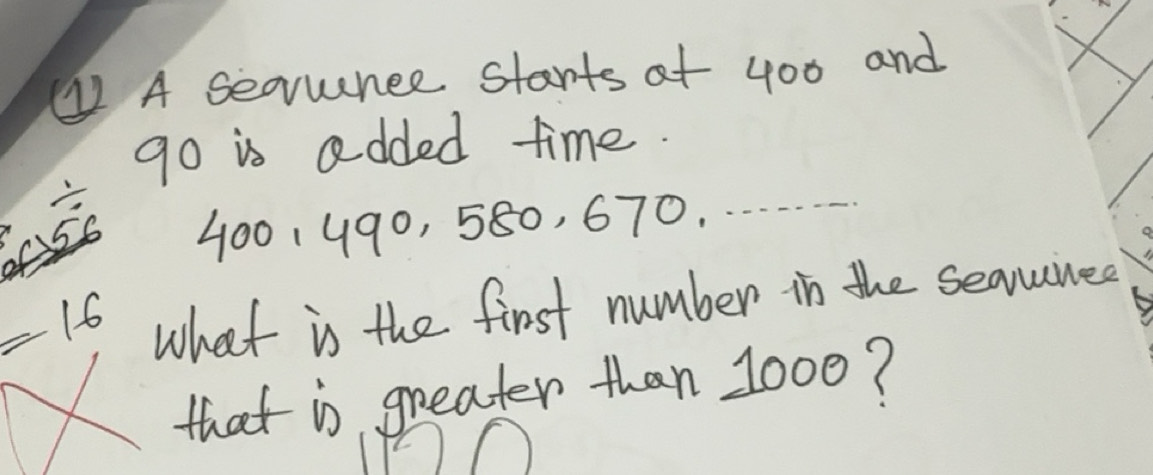 (1) A sequence starts at 400 and
90 is added time.
÷
56
400, 490, 580, 670, ........
= 16
What is the first number in the sequence
that is greater than 1000?